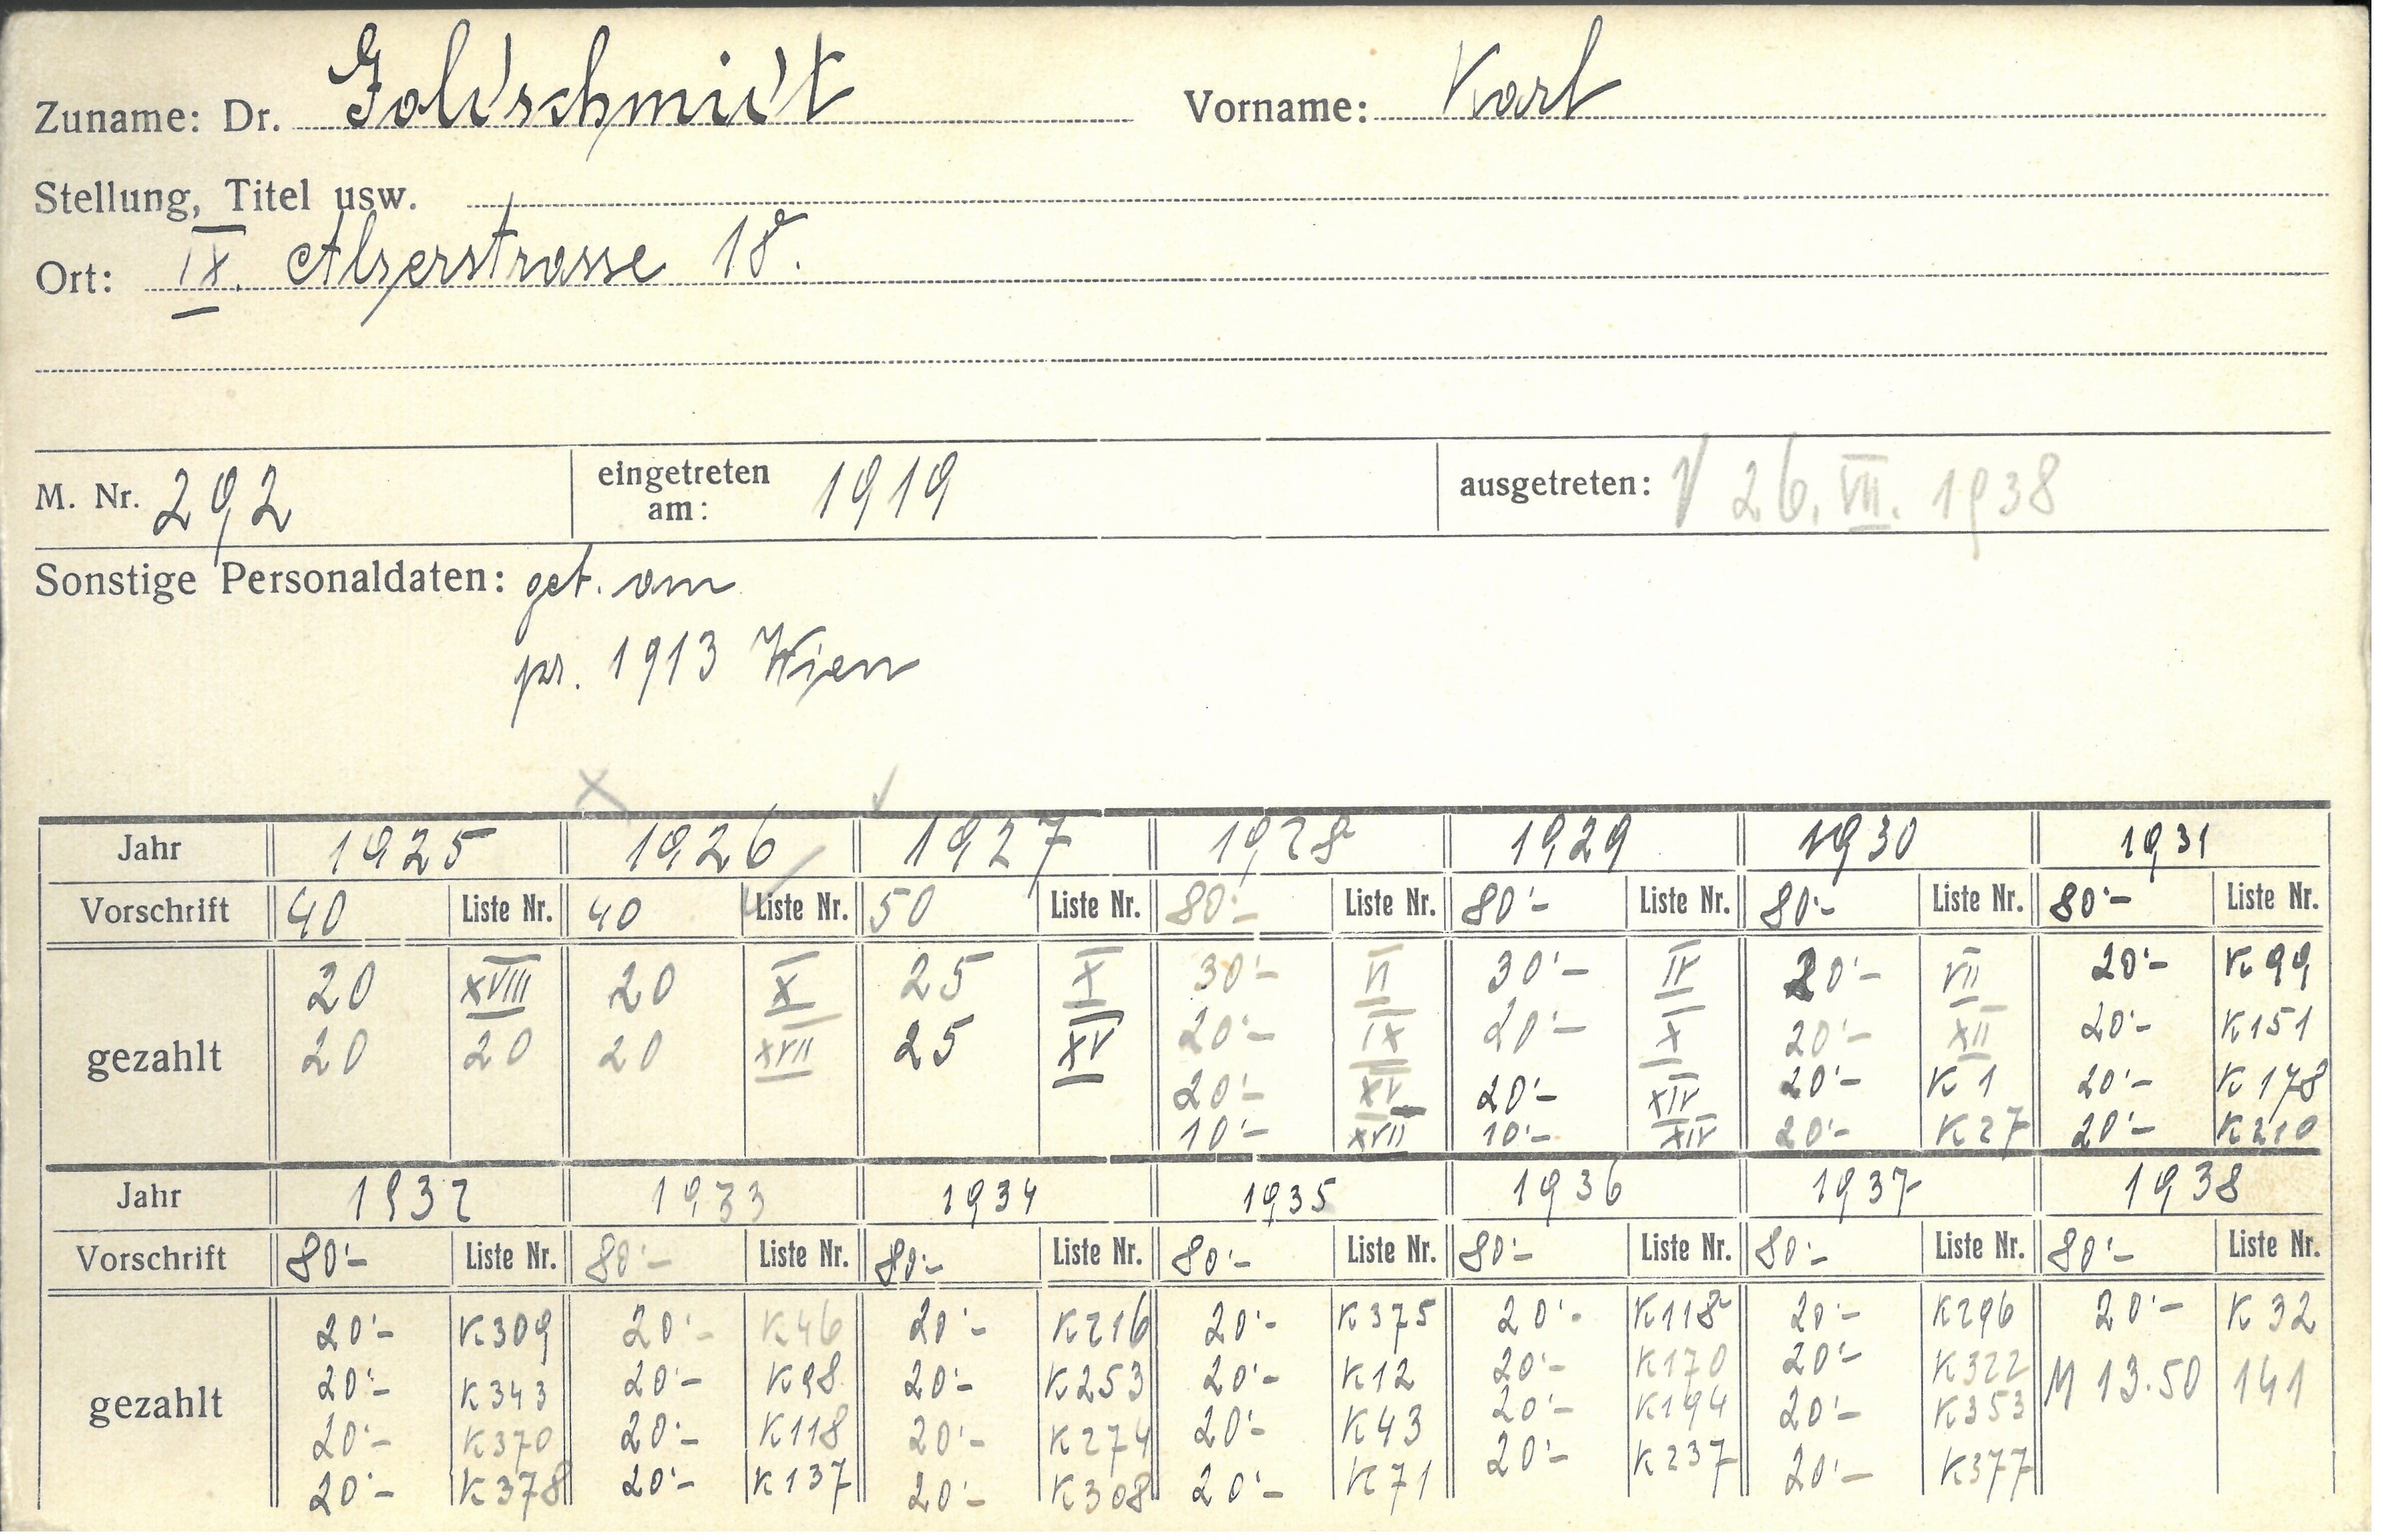 Zuname: Dr. Goldschmidt Vorname: Karl
Stellung, Titel usw.
Ort: IX. Alserstrasse 18.
M. Nr. 292 eingetreten am: 1919 ausgetreten: 26. VII. 1938
Sonstige Personaldaten: geb. am
pr. 1913 Wien
Jahr 1925 1926 1927 1928 1929 1930 1931
Vorschrift 40 Liste Nr. 40 Liste Nr. 50 Liste Nr. 80'- Liste Nr. 80'- Liste Nr. 80'- Liste Nr. 80'- Liste Nr.
gezahlt
20 XVIII 20 X 25 X 30'- VI 30'- IV 20'- VII 20'- K 99
20 20 20 XVII 25 XV 20'- IX 20'- X 20'- XII 20'- K 151
20'- XV 20'- XIV 20'- K 1 20'- K 178
10'- XVII 10'- XIV 20'- K 27 20'- K 210
Jahr 1932 1933 1934 1935 1936 1937 1938
Vorschrift 80'- Liste Nr. 80'- Liste Nr. 80'- Liste Nr. 80'- Liste Nr. 80'- Liste Nr. 80'- Liste Nr. 80'- Liste Nr.
gezahlt
20'- K 309 20'- K 46 20'- K 216 20'- K 375 20'- K 118 20'- K 296 20'- K 32
20'- K 343 20'- K 98 20'- K 253 20'- K 12 20'- K 170 20'- K 322 M 13.50 141
20'- K 370 20'- K 118 20'- K 274 20'- K 43 20'- K 194 20'- K 353
20'- K 378 20'- K 137 20'- K 308 20'- K 71 20'- K 237 20'- K 377